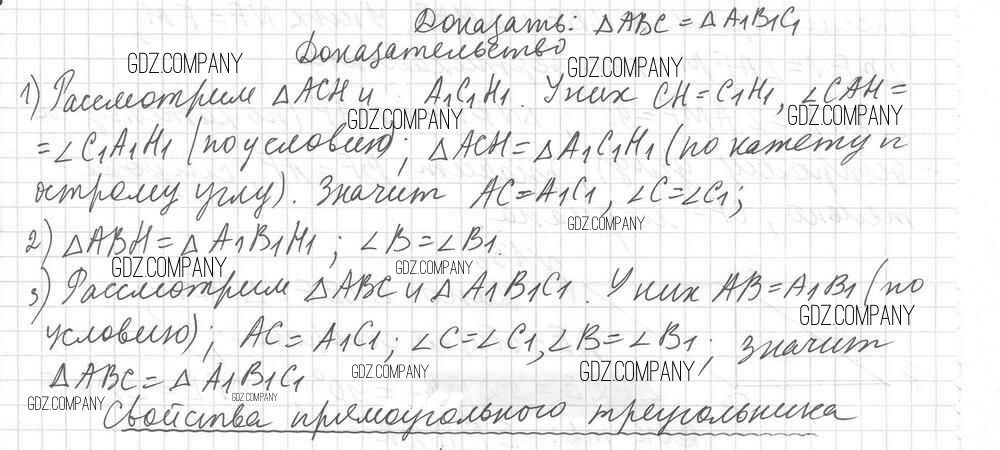 Доказать: △ABC = △A1B1C1
Доказательство
GDZ.COMPANY
GDZ.COMPANY
1) Рассмотрим △ACH и A1C1H1. У них CH = C1H1, ∠CAH =
GDZ.COMPANY
GDZ.COMPANY
= ∠C1A1H1 (по условию); △ACH = △A1C1H1 (по катету и
острому углу). Значит AC = A1C1, ∠C = ∠C1;
GDZ.COMPANY
2) △ABH = △A1B1H1; ∠B = ∠B1.
GDZ.COMPANY
GDZ.COMPANY
3) Рассмотрим △ABC и △A1B1C1. У них AB = A1B1 (по
GDZ.COMPANY
условию); AC = A1C1; ∠C = ∠C1, ∠B = ∠B1; значит
GDZ.COMPANY
GDZ.COMPANY
△ABC = △A1B1C1
GDZ.COMPANY
GDZ.COMPANY
Свойства прямоугольного треугольника